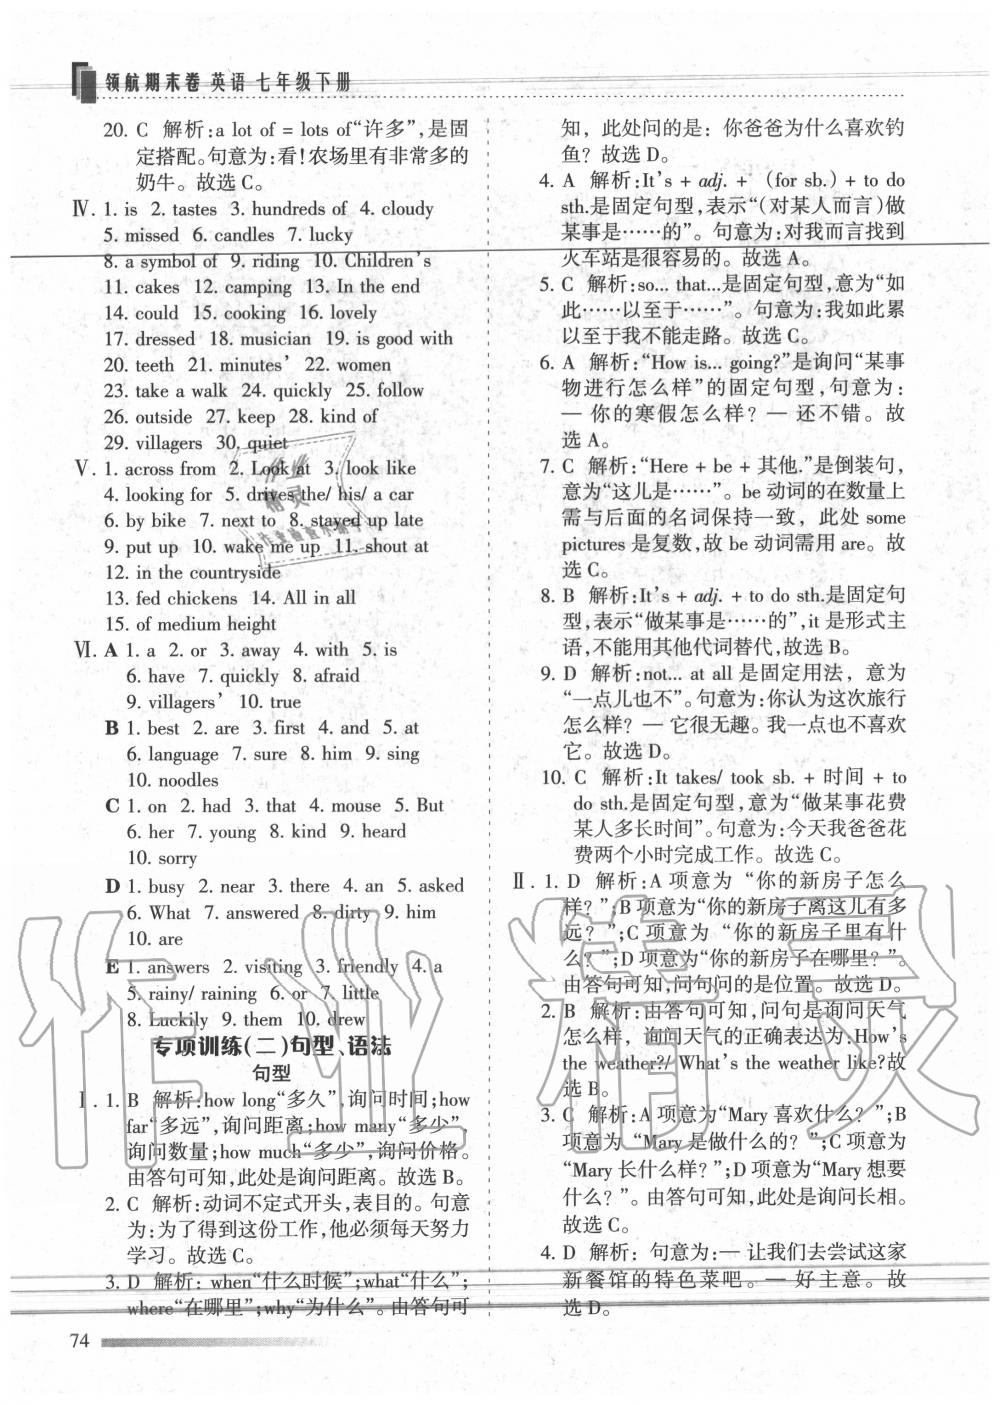 领航期末卷 英语 七年级下册
20. C 解析:a lot of = lots of“许多”,是固
定搭配。句意为:看!农场里有非常多的
奶牛。故选C。
Ⅳ. 1. is 2. tastes 3. hundreds of 4. cloudy
5. missed 6. candles 7. lucky
8. a symbol of 9. riding 10. Children's
11. cakes 12. camping 13. In the end
14. could 15. cooking 16. lovely
17. dressed 18. musician 19. is good with
20. teeth 21. minutes' 22. women
23. take a walk 24. quickly 25. follow
26. outside 27. keep 28. kind of
29. villagers 30. quiet
Ⅴ. 1. across from 2. Look at 3. look like
4. looking for 5. drives the/ his/ a car
6. by bike 7. next to 8. stayed up late
9. put up 10. wake me up 11. shout at
12. in the countryside
13. fed chickens 14. All in all
15. of medium height
Ⅵ. A 1. a 2. or 3. away 4. with 5. is
6. have 7. quickly 8. afraid
9. villagers' 10. true
B 1. best 2. are 3. first 4. and 5. at
6. language 7. sure 8. him 9. sing
10. noodles
C 1. on 2. had 3. that 4. mouse 5. But
6. her 7. young 8. kind 9. heard
10. sorry
D 1. busy 2. near 3. there 4. an 5. asked
6. What 7. answered 8. dirty 9. him
10. are
E 1. answers 2. visiting 3. friendly 4. a
5. rainy/ raining 6. or 7. little
8. Luckily 9. them 10. drew
专项训练(二)句型、语法
句型
Ⅰ. 1. B 解析:how long“多久”,询问时间;how
far“多远”,询问距离;how many“多少”,
询问数量;how much“多少”,询问价格。
由答句可知,此处是询问距离。故选B。
2. C 解析:动词不定式开头,表目的。句意
为:为了得到这份工作,他必须每天努力
学习。故选C。
3. D 解析:when“什么时候”;what“什么”;
where“在哪里”;why“为什么”。由答句可
知,此处问的是:你爸爸为什么喜欢钓
鱼?故选D。
4. A 解析:It's + adj. + (for sb.) + to do
sth.是固定句型,表示“(对某人而言)做
某事是……的”。句意为:对我而言找到
火车站是很容易的。故选A。
5. C 解析:so... that...是固定句型,意为“如
此……以至于……”。句意为:我如此累
以至于我不能走路。故选C。
6. A 解析:“How is... going?”是询问“某事
物进行怎么样”的固定句型,句意为:
— 你的寒假怎么样?— 还不错。故
选A。
7. C 解析:“Here + be + 其他.”是倒装句,
意为“这儿是……”。be动词的在数量上
需与后面的名词保持一致,此处 some
pictures是复数,故be动词需用are。故
选C。
8. B 解析:It's + adj. + to do sth.是固定句
型,表示“做某事是……的”,it是形式主
语,不能用其他代词替代,故选B。
9. D 解析:not... at all是固定用法,意为
“一点儿也不”。句意为:你认为这次旅行
怎么样?— 它很无趣。我一点也不喜欢
它。故选D。
10. C 解析:It takes/ took sb. + 时间 + to
do sth.是固定句型,意为“做某事花费
某人多长时间”。句意为:今天我爸爸花
费两个小时完成工作。故选C。
Ⅱ. 1. D 解析:A项意为“你的新房子怎么
样?”;B项意为“你的新房子离这儿有多
远?”;C项意为“你的新房子里有什
么?”;D项意为“你的新房子在哪里?”。
由答句可知,问句问的是位置。故选D。
2. B 解析:由答句可知,问句是询问天气
怎么样,询问天气的正确表达为:How's
the weather?/ What's the weather like?故
选B。
3. C 解析:A项意为“Mary喜欢什么?”;B
项意为“Mary是做什么的?”;C项意为
“Mary长什么样?”;D项意为“Mary想要
什么?”。由答句可知,此处是询问长相。
故选C。
4. D 解析:句意为:— 让我们去尝试这家
新餐馆的特色菜吧。— 好主意。故
选D。
74
作业精灵